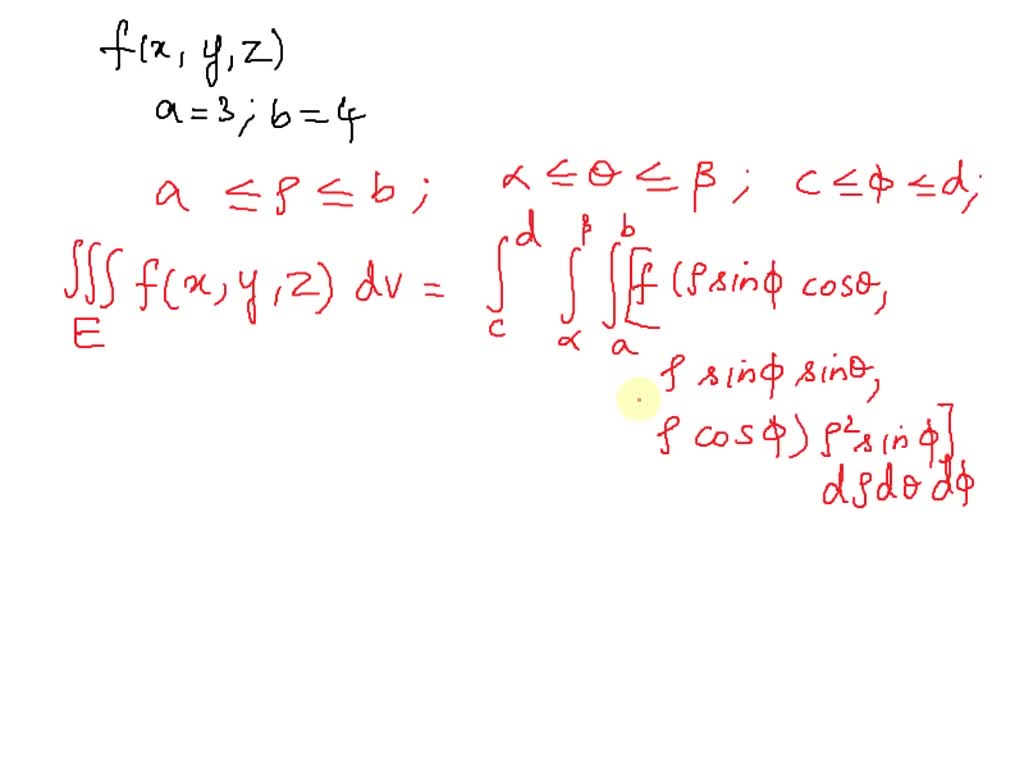 f(x, y, z)
a = 3; b = 4
a ≤ ρ ≤ b; α ≤ θ ≤ β; c ≤ ϕ ≤ d;
∭_E f(x, y, z) dv = ∫_c^d ∫_α^β ∫_a^b [f (ρ sinϕ cosθ,
ρ sinϕ sinθ,
ρ cosϕ) ρ² sinϕ]
dρ dθ dϕ